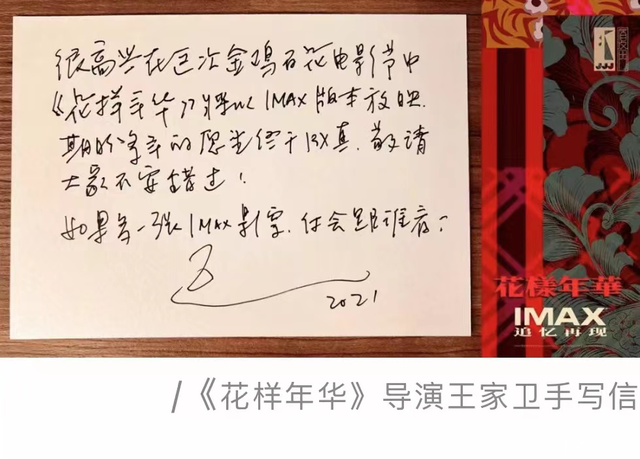 很高兴在是次金鸡百花电影节中
《花样年华》将以IMAX版本放映.
期盼多年的愿望终于成真.敬请
大家不要错过!
如果多一张IMAX影票.你会跟谁看?
2021
花樣年華
IMAX
追忆再现
/《花样年华》导演王家卫手写信